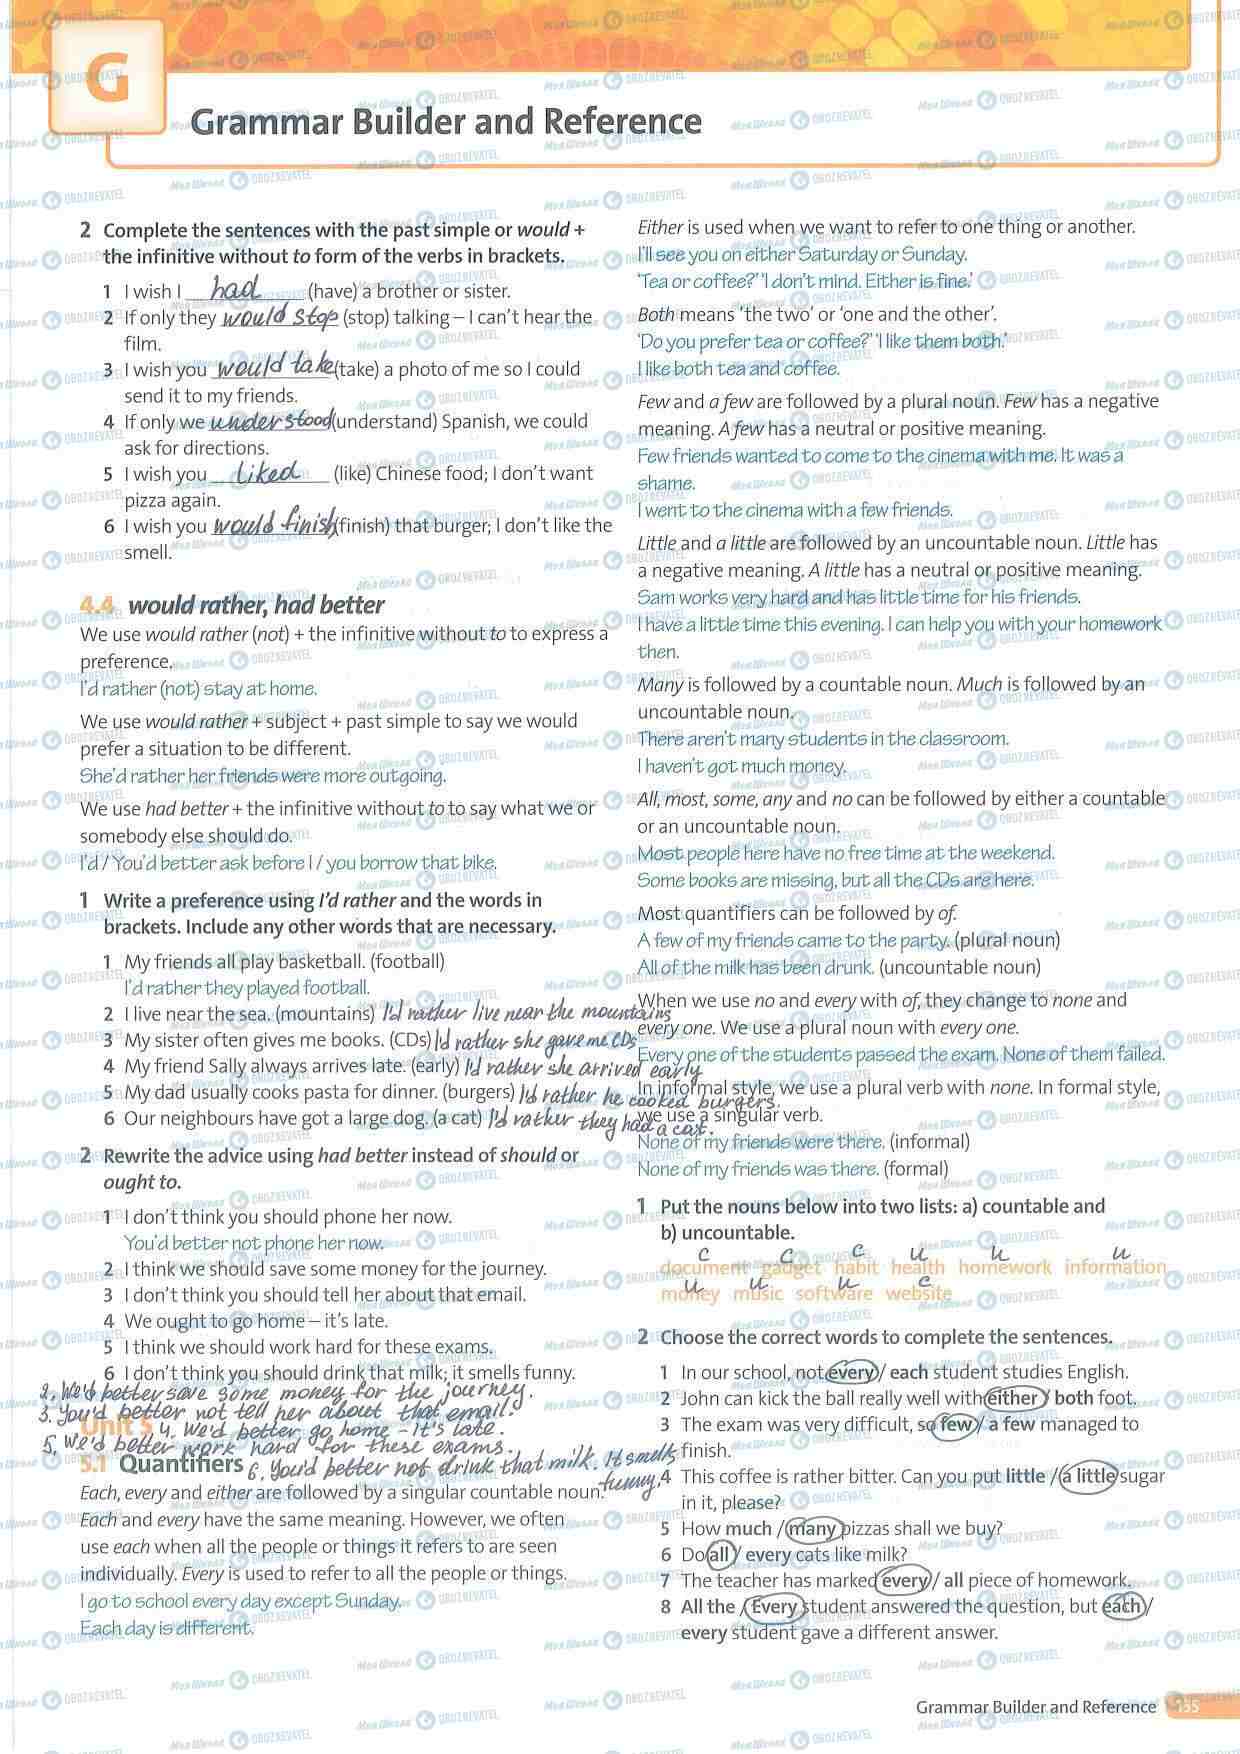 G
Grammar Builder and Reference
2 Complete the sentences with the past simple or would +
the infinitive without to form of the verbs in brackets.
1 I wish I had (have) a brother or sister.
2 If only they would stop (stop) talking – I can't hear the
film.
3 I wish you would take (take) a photo of me so I could
send it to my friends.
4 If only we understood (understand) Spanish, we could
ask for directions.
5 I wish you liked (like) Chinese food; I don't want
pizza again.
6 I wish you would finish (finish) that burger; I don't like the
smell.
4.4 would rather, had better
We use would rather (not) + the infinitive without to to express a
preference.
I'd rather (not) stay at home.
We use would rather + subject + past simple to say we would
prefer a situation to be different.
She'd rather her friends were more outgoing.
We use had better + the infinitive without to to say what we or
somebody else should do.
I'd / You'd better ask before I / you borrow that bike.
1 Write a preference using I'd rather and the words in
brackets. Include any other words that are necessary.
1 My friends all play basketball. (football)
I'd rather they played football.
2 I live near the sea. (mountains) I'd rather live near the mountains
3 My sister often gives me books. (CDs) I'd rather she gave me CDs
4 My friend Sally always arrives late. (early) I'd rather she arrived early
5 My dad usually cooks pasta for dinner. (burgers) I'd rather he cooked burgers.
6 Our neighbours have got a large dog. (a cat) I'd rather they had a cat.
2 Rewrite the advice using had better instead of should or
ought to.
1 I don't think you should phone her now.
You'd better not phone her now.
2 I think we should save some money for the journey.
3 I don't think you should tell her about that email.
4 We ought to go home – it's late.
5 I think we should work hard for these exams.
6 I don't think you should drink that milk; it smells funny.
2. We'd better save some money for the journey.
3. You'd better not tell her about that email.
Unit 5 4. We'd better go home – it's late.
5. We'd better work hard for these exams.
5.1 Quantifiers 6. You'd better not drink that milk. It smells
funny.
Each, every and either are followed by a singular countable noun.
Each and every have the same meaning. However, we often
use each when all the people or things it refers to are seen
individually. Every is used to refer to all the people or things.
I go to school every day except Sunday.
Each day is different.
Either is used when we want to refer to one thing or another.
I'll see you on either Saturday or Sunday.
'Tea or coffee?' 'I don't mind. Either is fine.'
Both means 'the two' or 'one and the other'.
'Do you prefer tea or coffee?' 'I like them both.'
I like both tea and coffee.
Few and a few are followed by a plural noun. Few has a negative
meaning. A few has a neutral or positive meaning.
Few friends wanted to come to the cinema with me. It was a
shame.
I went to the cinema with a few friends.
Little and a little are followed by an uncountable noun. Little has
a negative meaning. A little has a neutral or positive meaning.
Sam works very hard and has little time for his friends.
I have a little time this evening. I can help you with your homework
then.
Many is followed by a countable noun. Much is followed by an
uncountable noun.
There aren't many students in the classroom.
I haven't got much money.
All, most, some, any and no can be followed by either a countable
or an uncountable noun.
Most people here have no free time at the weekend.
Some books are missing, but all the CDs are here.
Most quantifiers can be followed by of.
A few of my friends came to the party. (plural noun)
All of the milk has been drunk. (uncountable noun)
When we use no and every with of, they change to none and
every one. We use a plural noun with every one.
Every one of the students passed the exam. None of them failed.
In informal style, we use a plural verb with none. In formal style,
we use a singular verb.
None of my friends were there. (informal)
None of my friends was there. (formal)
1 Put the nouns below into two lists: a) countable and
b) uncountable.
c c c u u u
document gadget habit health homework information
u u u c
money music software website
2 Choose the correct words to complete the sentences.
1 In our school, not every / each student studies English.
2 John can kick the ball really well with either / both foot.
3 The exam was very difficult, so few / a few managed to
finish.
4 This coffee is rather bitter. Can you put little / a little sugar
in it, please?
5 How much / many pizzas shall we buy?
6 Do all / every cats like milk?
7 The teacher has marked every / all piece of homework.
8 All the / Every student answered the question, but each /
every student gave a different answer.
Grammar Builder and Reference 135